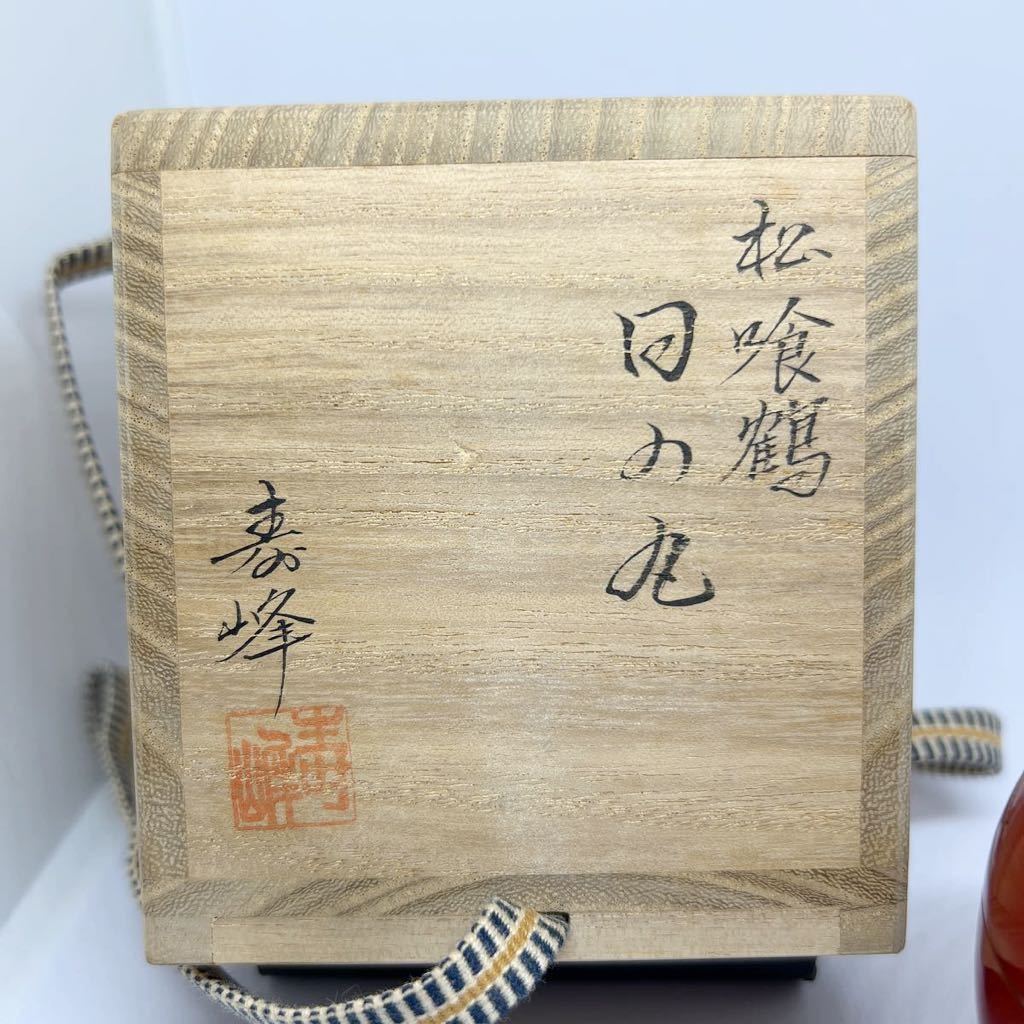 松喰鶴
日の丸
寿峰